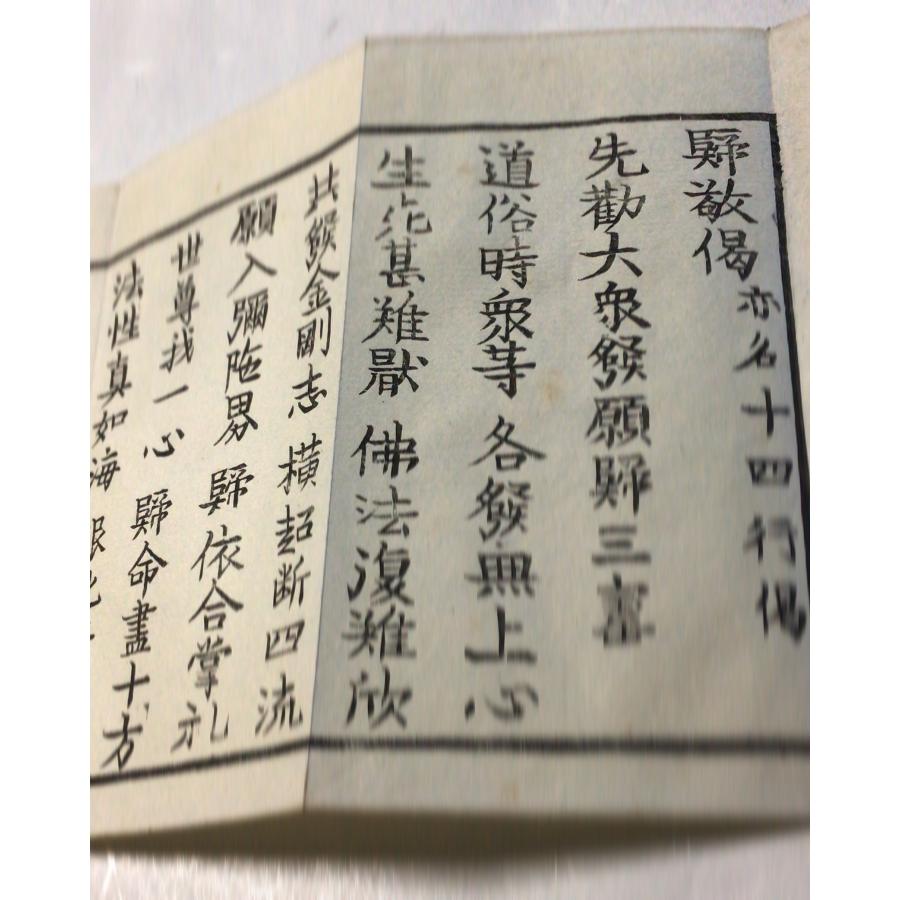 歸敬偈 亦名十四行偈
先勸大衆發願歸三寶
道俗時衆等 各發無上心
生死甚難厭 佛法復難欣
共發金剛志 横超断四流
願入彌陁界 歸依合掌礼
世尊我一心 歸命盡十方
法性真如海